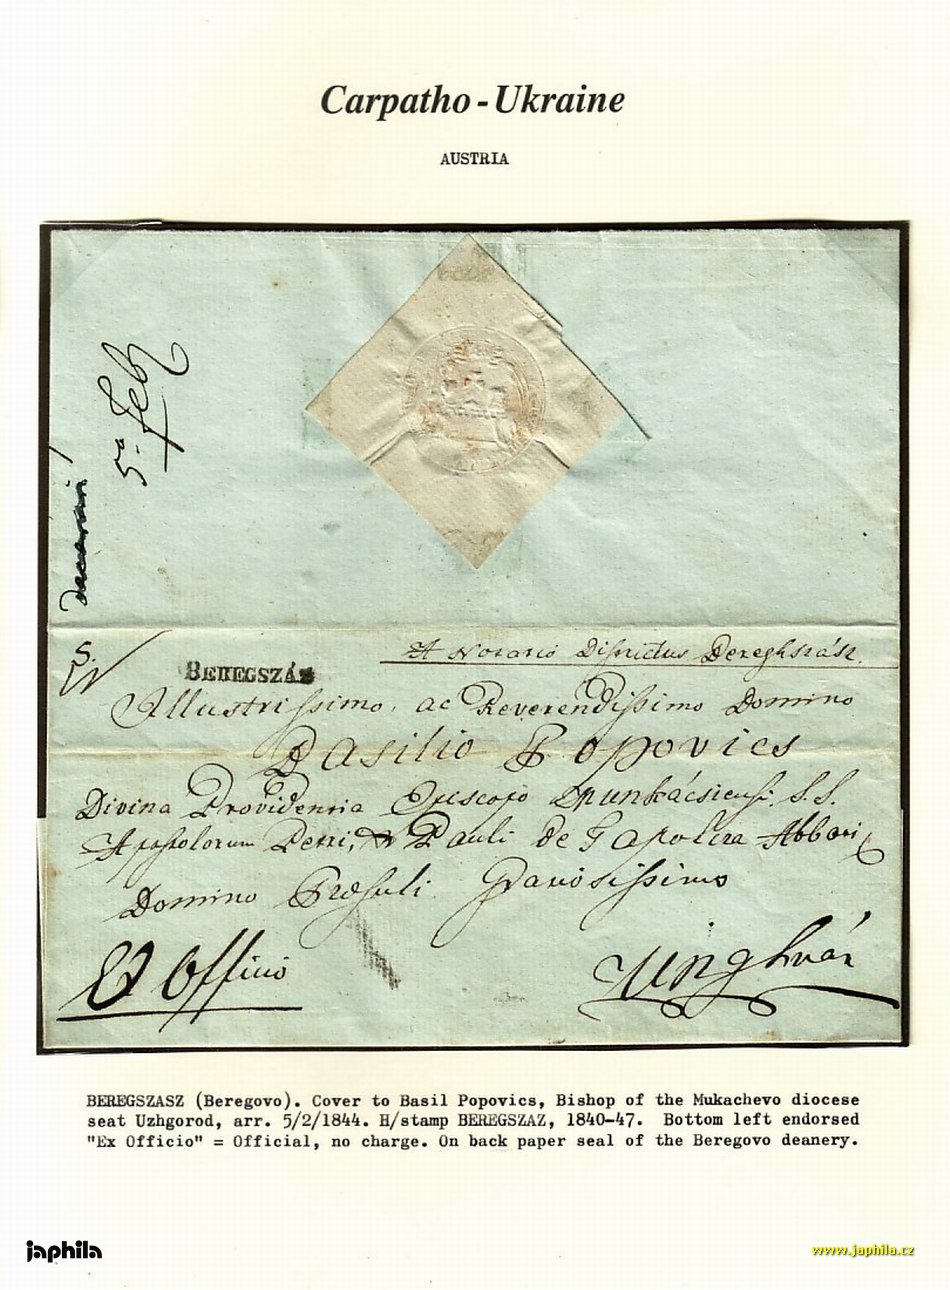 Carpatho - Ukraine
AUSTRIA
5a Feb
S.
BEREGSZÁZ
A Notario Districtus Bereghszász.
Illustrissimo, ac Reverendissimo Domino
Basilio Popovics
Divina Providentia Episcopo Munkácsiensi, S.S.
Apostolorum Petri, & Pauli de Tapolcza Abbati,
Domino Præsuli Gratiosissimo
Ex Officio
Unghvár
BEREGSZASZ (Beregovo). Cover to Basil Popovics, Bishop of the Mukachevo diocese
seat Uzhgorod, arr. 5/2/1844. H/stamp BEREGSZAZ, 1840-47. Bottom left endorsed
"Ex Officio" = Official, no charge. On back paper seal of the Beregovo deanery.
japhila
www.japhila.cz